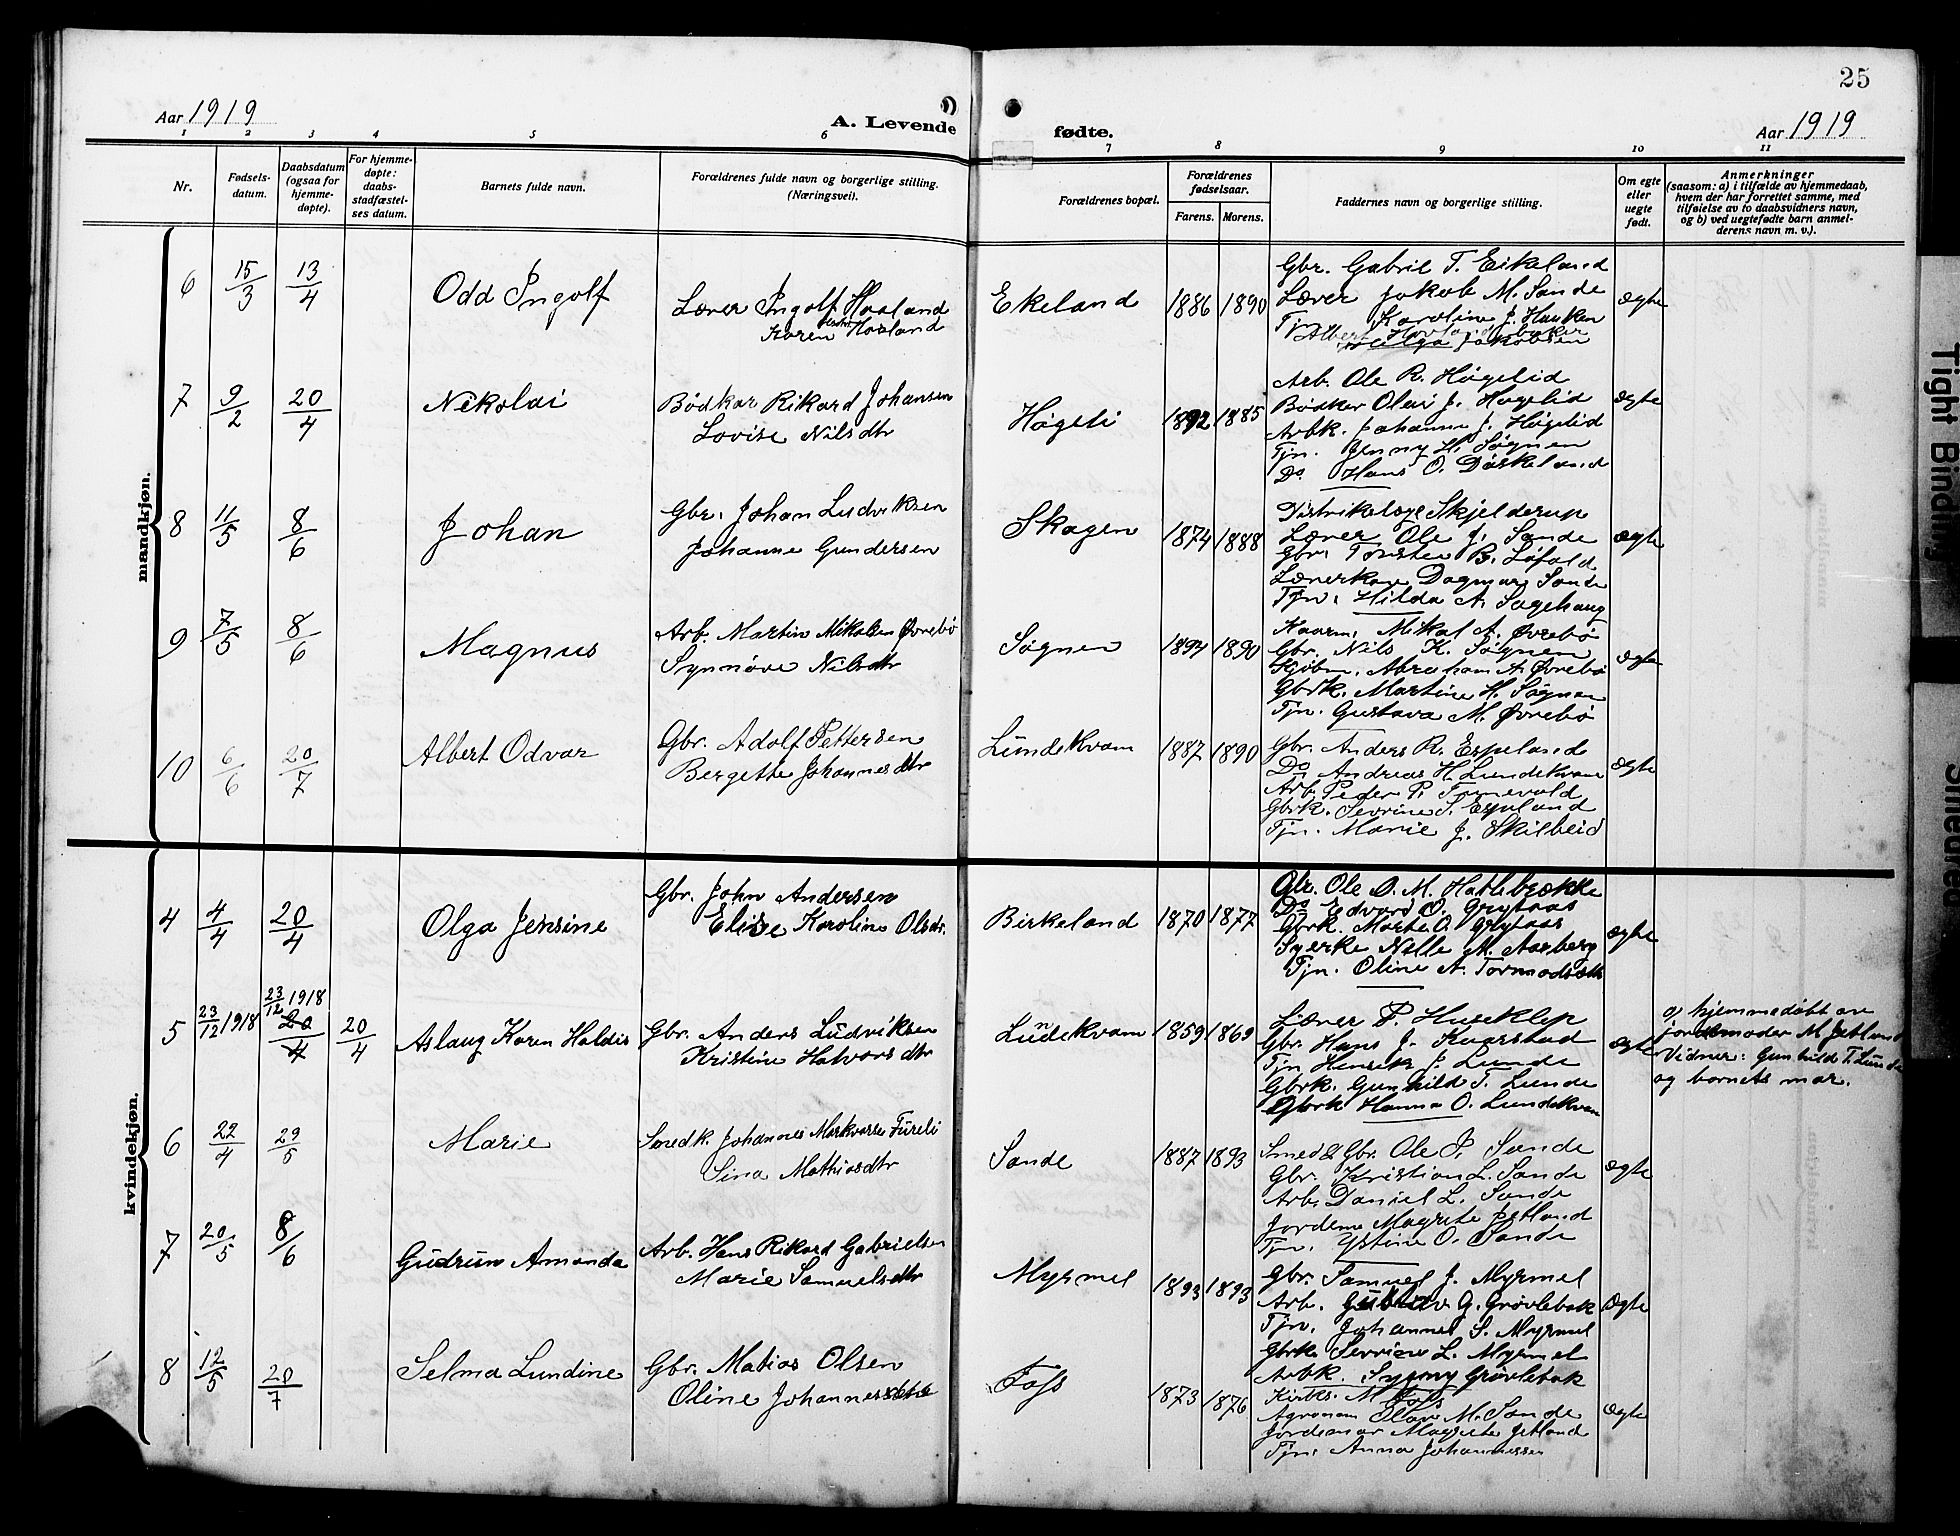 25
Aar 1919
A. Levende
fødte.
Aar 1919
1 2 3 4 5 6 7 8 9 10 11
Nr.
Fødsels-
datum.
Daabsdatum
(ogsaa for
hjemme-
døpte).
For hjemme-
døpte:
daabs-
stadfæstel-
ses datum.
Barnets fulde navn.
Forældrenes fulde navn og borgerlige stilling.
(Næringsvei).
Forældrenes bopæl.
Forældrenes
fødselsaar.
Farens. Morens.
Faddernes navn og borgerlige stilling.
Om egte
eller
uegte
født.
Anmerkninger
(saasom: a) i tilfælde av hjemmedaab,
hvem der har forrettet samme, med
tilføielse av to daabsvidners navn,
og b) ved uegtefødte barn anmel-
derens navn m. v.).
mandkjøn.
6 15/3 13/4 Odd Ingolf
Lærer Ingolf Hovland
Karen Hovland
Ekeland 1886 1890
Gbr. Gabril T. Eikeland
Lærer Jakob M. Sande
Tjn. Karoline J. Hauken
Albert Hovland
Helga Jakobsen
Ægte
7 9/2 20/4 Nikolai
Bødker Rikard Johansen
Lovise Nilsdtr
Høgeli 1892 1885
Arb. Ole R. Høgelid
Bødker Olai J. Høgelid
Arbk. Johanne J. Høgelid
Tjn. Jenny H. Søgnen
Do Hans O. Døskeland
Ægte
8 11/5 8/6 Johan
Gbr. Johan Ludviksen
Johanne Gundersen
Skogen 1874 1888
Distriktslæge Skjelderup
Lærer Ole J. Sande
Gbr. Torsten B. Løfald
Lærerkone Dagmar Sande
Tjn. Hilda A. Sagehaug
Ægte
9 7/5 8/6 Magnus
Arb. Martin Mikalsen Øvrebø
Synnøve Nilsdtr
Søgnen 1894 1890
Kaarm. Mikal A. Øvrebø
Gbr. Nils K. Søgnen
Kjøbm. Abraham A. Øvrebø
Gbrk. Martine H. Søgnen
Tjn. Gustava M. Øvrebø
Ægte
10 6/6 20/7 Albert Odvar
Gbr. Adolf Pettersen
Bergette Johannesdtr
Lundekvam 1887 1890
Gbr. Anders R. Espeland
Do Andreas H. Lundekvam
Arb. Peder P. Furevold
Gbrk. Sevrine S. Espeland
Tjn. Marie J. Skilbeid
Ægte
kvindekjøn.
4 4/4 20/4 Olga Jensine
Gbr. John Andersen
Elise Karoline Olsdr.
Birkeland 1870 1877
Gbr. Ole O. M. Hatlebrække
Do Edvard O. Grytaas
Gbrk. Marte O. Grytaas
Syerke Nelle M. Aarberg
Tjn. Oline A. Tormodsæth
Ægte
5 23/12 1918 23/12 1918 20/4 20/4 Aslaug Karen Haldis
Gbr. Anders Ludviksen
Kristine Halvorsdtr
Lundekvam 1859 1869
Lærer P. Huseklep
Gbr. Hans J. Kaarstad
Tjn Henrik J. Lunde
Gbrk. Gunhild T. Lunde
Gbrk Hanna O. Lundekvam
Ægte
a) hjemmedøbt av
jordemoder M Jetland
Vidner: Gunhild T. Lunde
og barnets mor.
6 22/4 29/5 Marie
Smedk. Johannes Markvarsen Furebø
Sina Mathiasdtr
Sande 1887 1893
Smed & Gbr. Ole P. Sande
Gbr. Kristian L. Sande
Arb. Daniel L. Sande
Jordem Magrete Jetland
Tjn. Ystine O. Sande
Ægte
7 20/5 8/6 Gudrun Amanda
Arb. Hans Rikard Gabrielsen
Marie Samuelsdtr
Myrmel 1893 1893
Gbr. Samuel J. Myrmel
Arb. Gustav G. Grøvlebak
Tjn. Johannes S. Myrmel
Gbrk Sevrine L. Myrmel
Arbk. Synny Grøvlebak
Ægte
8 12/5 20/7 Selma Lundine
Gbr. Matias Olsen
Oline Johannesdtr
Foss 1873 1876
Kirks. M Foss
Agronom Olav M. Sande
Jordemor Magrete Jetland
Tjn. Anna Johannessen
Ægte
Tight Binding
Smeared